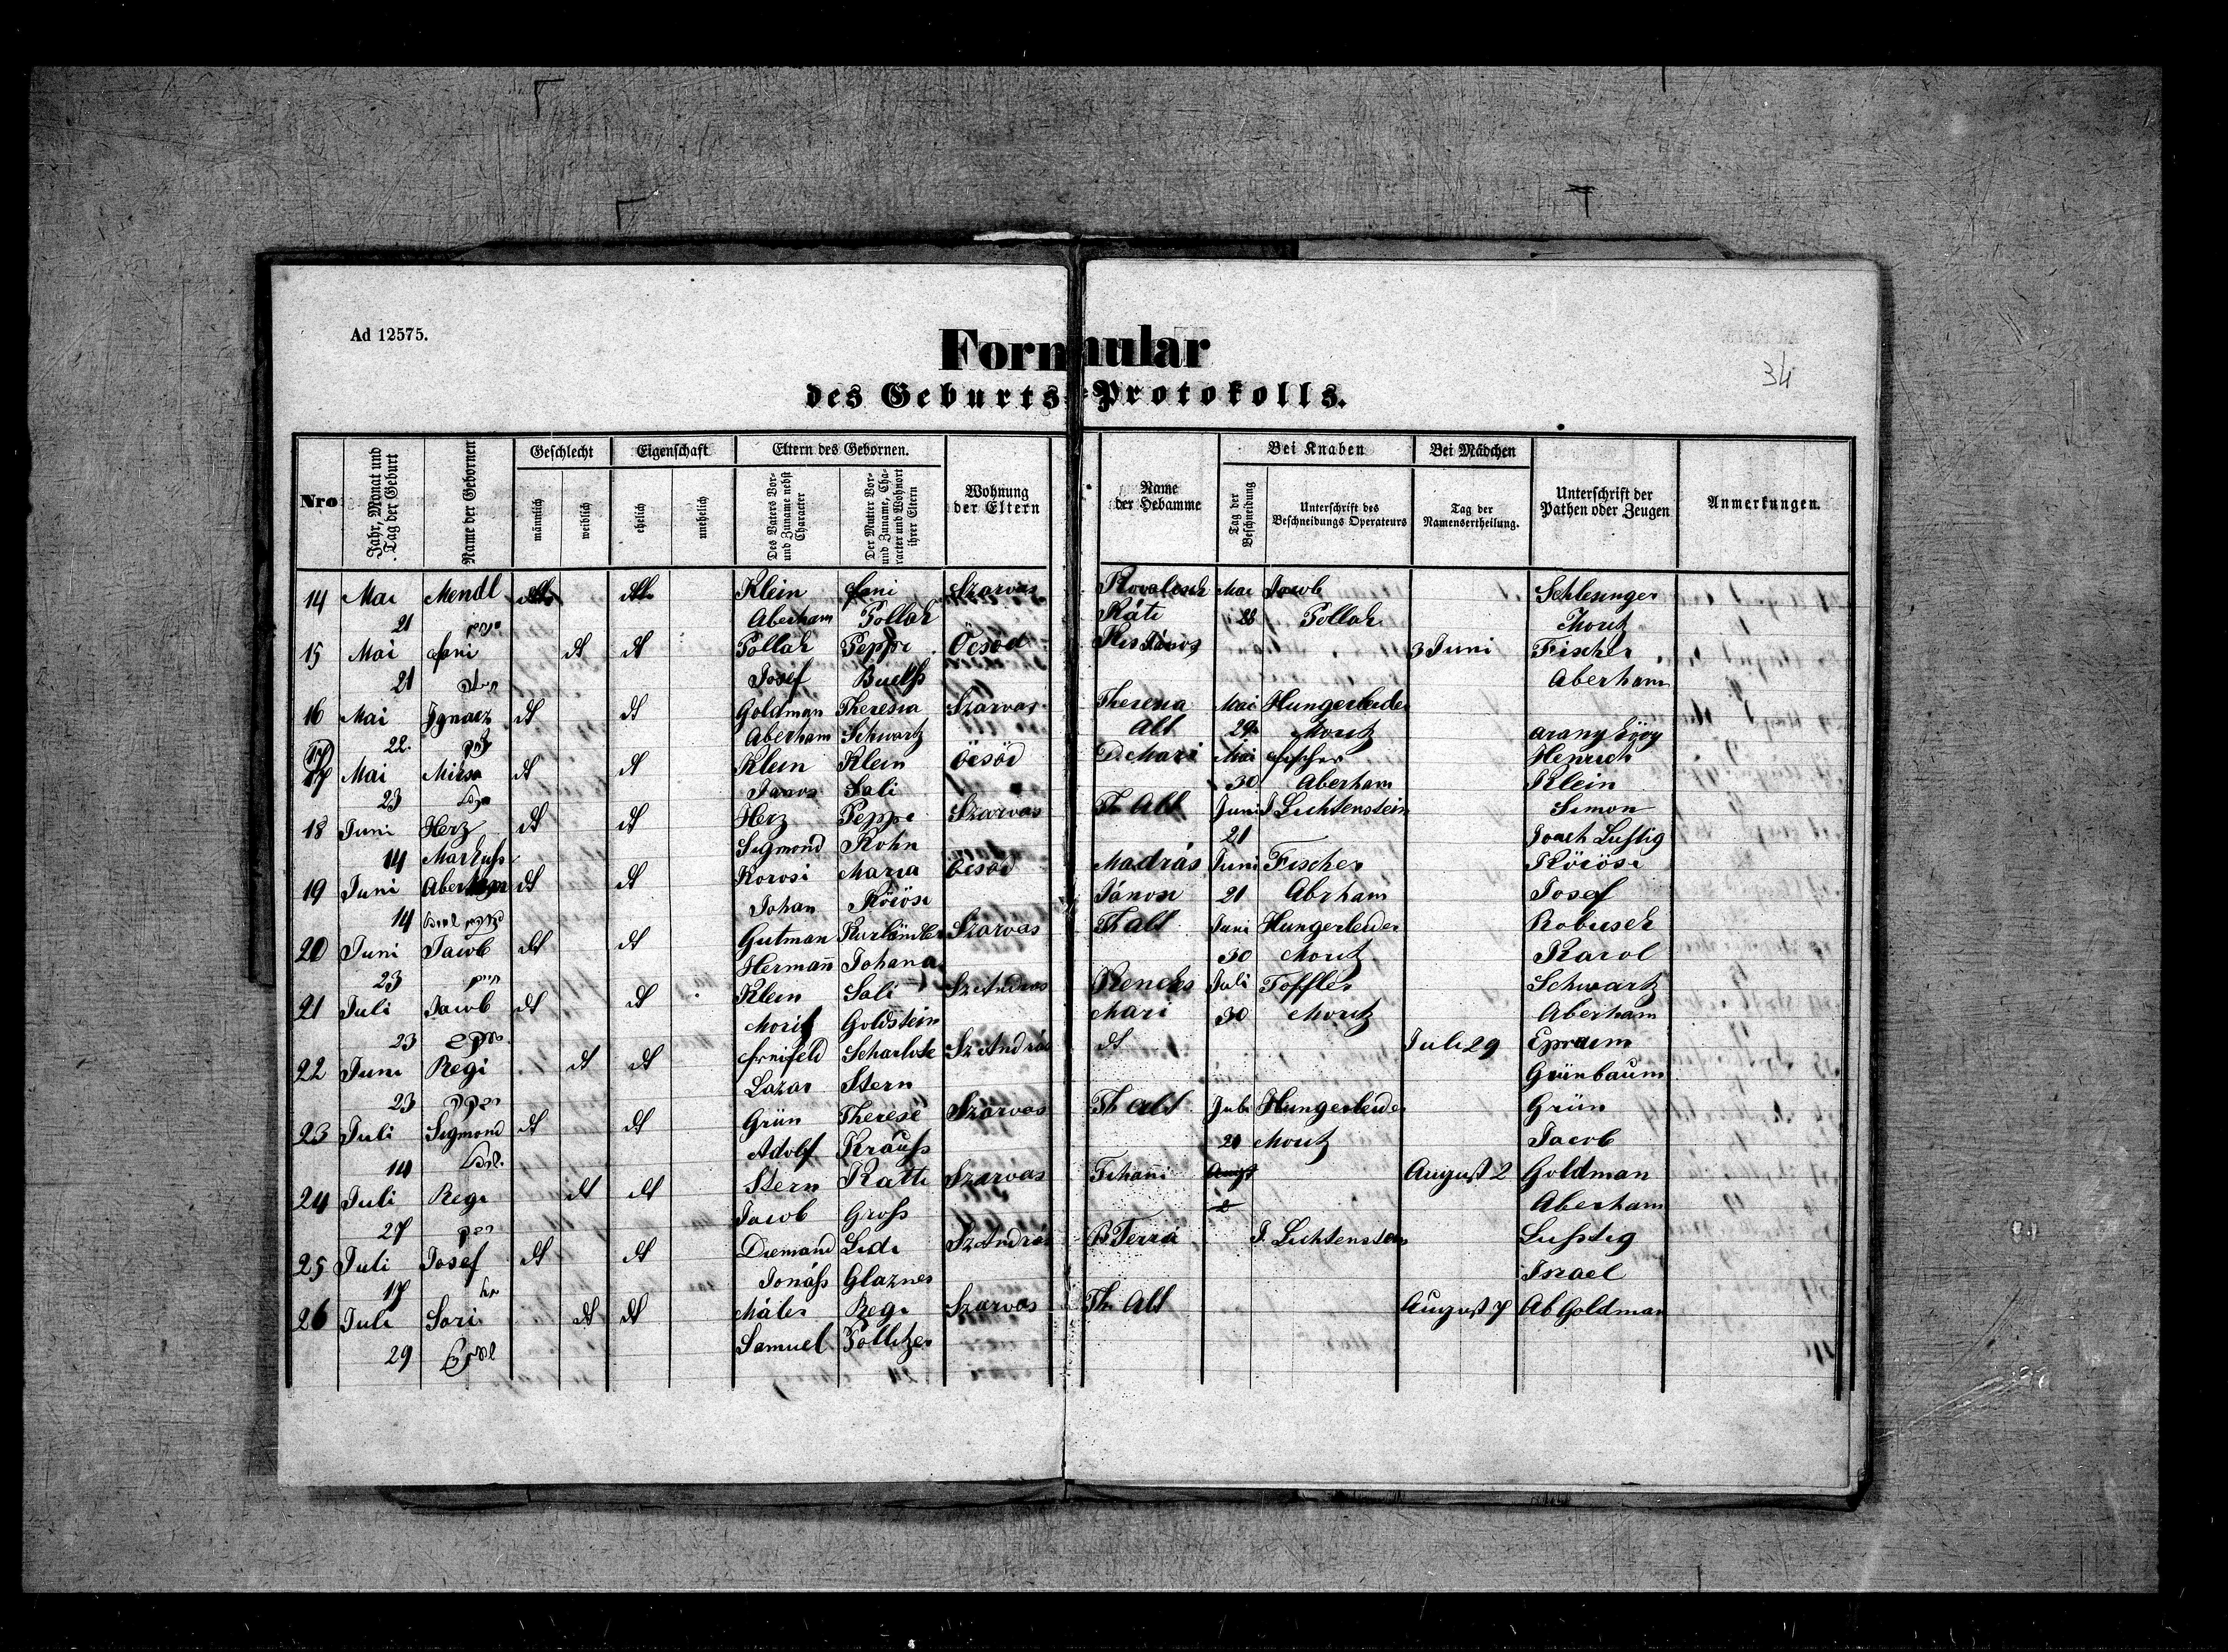 Ad 12575.
34
Formular
des Geburts-Protokolls.
Nro
Jahr, Monat und Tag der Geburt
Name der Gebornen
Geschlecht
männlich
weiblich
Eigenschaft
ehelich
unehelich
Eltern des Gebornen.
Des Vaters Vor- und Zuname nebst Character
Der Mutter Vor- und Zuname, Character und Wohnort ihrer Eltern
Wohnung der Eltern
Name der Hebamme
Bei Knaben
Tag der Beschneidung
Unterschrift des Beschneidungs Operateurs
Bei Mädchen
Tag der Namensertheilung.
Unterschrift der Pathen oder Zeugen
Anmerkungen.
14 Mai Mendl Klein Fani Szarvas Mai Jacob Schlesinger
21 Aberham Pollak Káti 28 Pollak Moritz
15 Mai Fani dt dt Pollak Peppi Öcsöd Kis János 3 Juni Fischer
21 Josef Aberham
16 Mai Ignacz dt dt Goldman Theresia Szarvas Theresia Mai Hungerleider
22 Aberham Schwartz Alt 29 Moritz
17 Mai dt dt Klein Klein Öcsöd Mari Mai Fischer Henrich
23 Janos Sali 30 Aberham Klein
18 Juni Herz dt dt Herz Peppi Szarvas Th Alt Juni J Lichtenstein Simon
14 Markuss Sigmond Kohn 21 Lustig
19 Juni Aberham dt dt Korosi Maria Öcsöd Madrás Juni Fischer Körösi
14 Johan Körösi Jánosi 21 Abrham Josef
20 Juni Jacob dt dt Gutman Kurländer Szarvas Th alt Juni Hungerleider Robusek
23 Hermañ Johana 30 Moritz Karol
21 Juli Jacob dt dt Klein Sali Sz Andras Juli Töffler Schwartz
23 Moritz Goldstein Mari 30 Moritz Aberham
22 Juni Regi dt dt Scharlote Sz András dt Juli 29 Epraim
23 Lazar Stern Grünbaum
23 Juli Sigmond dt dt Grün Therese Szarvas Th alt Juli Hungerleider Grün
14 Adolf Krauss 21 Moritz Jacob
24 Juli Regi dt dt Stern Katti Szarvas Tihañi August 2 Goldman
27 Jacob Gross Aberham
25 Juli Josef dt dt Diemand Lidi Sz András J. Lichtenstein Lusstig
17 Jonáss Glazner Israel
26 Juli Sari dt dt Máler Regi Szarvas Th. Alt August 7 Ab Goldman
29 Samuel Pollitzer